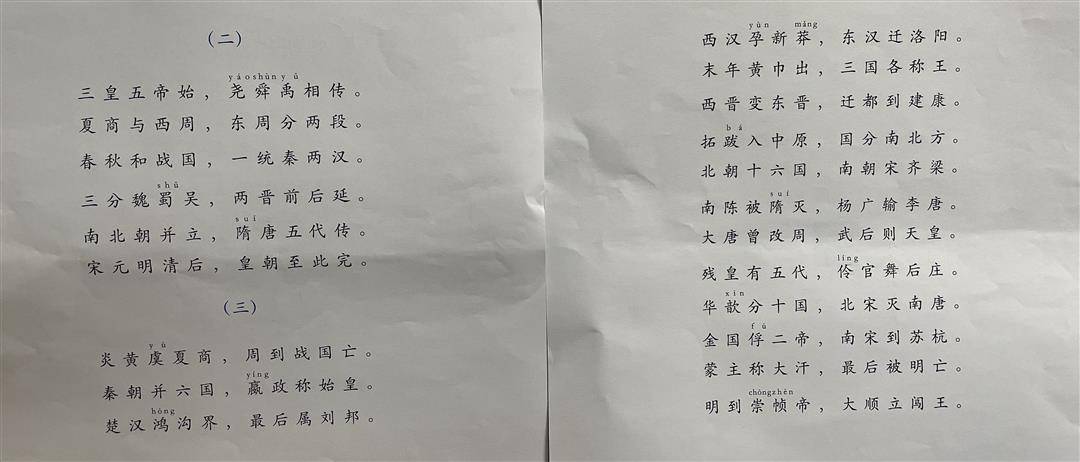 （二）
yáo shùn yǔ
三皇五帝始，尧舜禹相传。
夏商与西周，东周分两段。
春秋和战国，一统秦两汉。
shǔ
三分魏蜀吴，两晋前后延。
suí
南北朝并立，隋唐五代传。
宋元明清后，皇朝至此完。
（三）
yú
炎黄虞夏商，周到战国亡。
yíng
秦朝并六国，嬴政称始皇。
hóng
楚汉鸿沟界，最后属刘邦。
yùn mǎng
西汉孕新莽，东汉迁洛阳。
末年黄巾出，三国各称王。
西晋变东晋，迁都到建康。
bá
拓跋入中原，国分南北方。
北朝十六国，南朝宋齐梁。
suí
南陈被隋灭，杨广输李唐。
大唐曾改周，武后则天皇。
líng
残皇有五代，伶官舞后庄。
xīn
华歆分十国，北宋灭南唐。
fú
金国俘二帝，南宋到苏杭。
蒙主称大汗，最后被明亡。
chóng zhēn
明到崇帧帝，大顺立闯王。